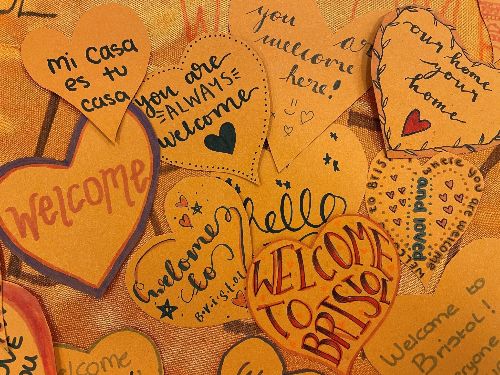 mi casa
es tu
casa
you are
ALWAYS
welcome
you
welcome
here!
our home
your
home
Welcome
hello
Welcome
to
Bristol
WELCOME
TO
BRISTOL
to Bris
where you are welcome
and loved
Welcome to
Bristol!
everyone
welcome
you